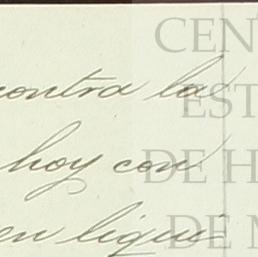 contra la
hoy con
en liqui
CEN
EST
DE H
DE M